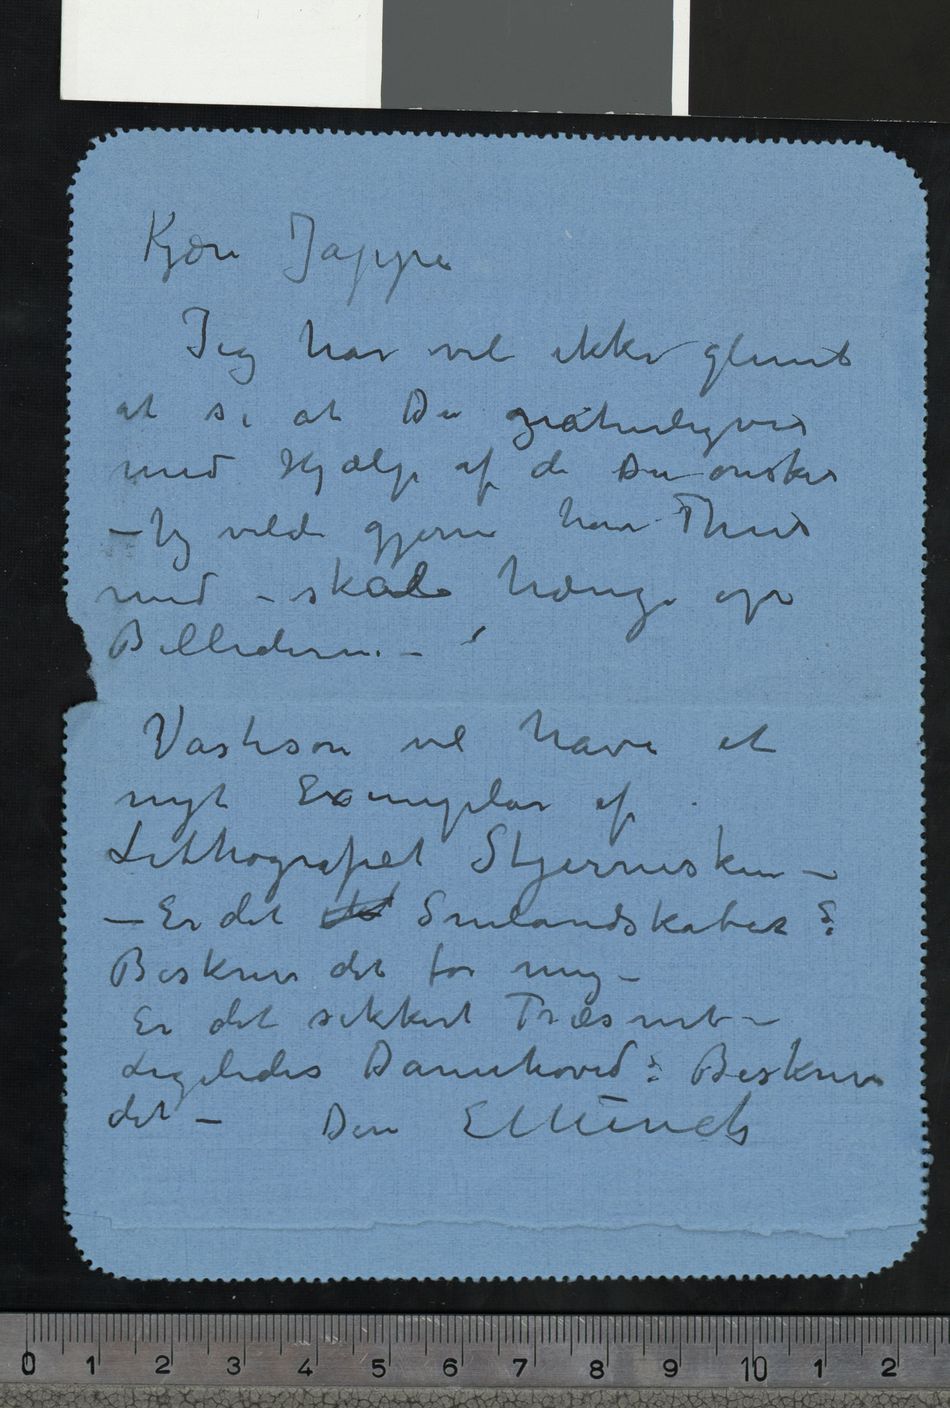 Kjære Jappe
Jeg har vel ikke glemt
at si at Du naturligvis
med Hjælp af de Du ønsker
– Jeg vilde gjerne have Thiis
med – skal hænge op
Billederne. –
Vastesson vil have et
nyt Exemplar af
Lithografiet Stjerneskin –
– Er det Snelandskabet?
Beskriv det for mig –
Er det sikkert Træsnit –
Ligeledes Damehoved? Beskriv
det – Din EMunch
0 1 2 3 4 5 6 7 8 9 10 1 2